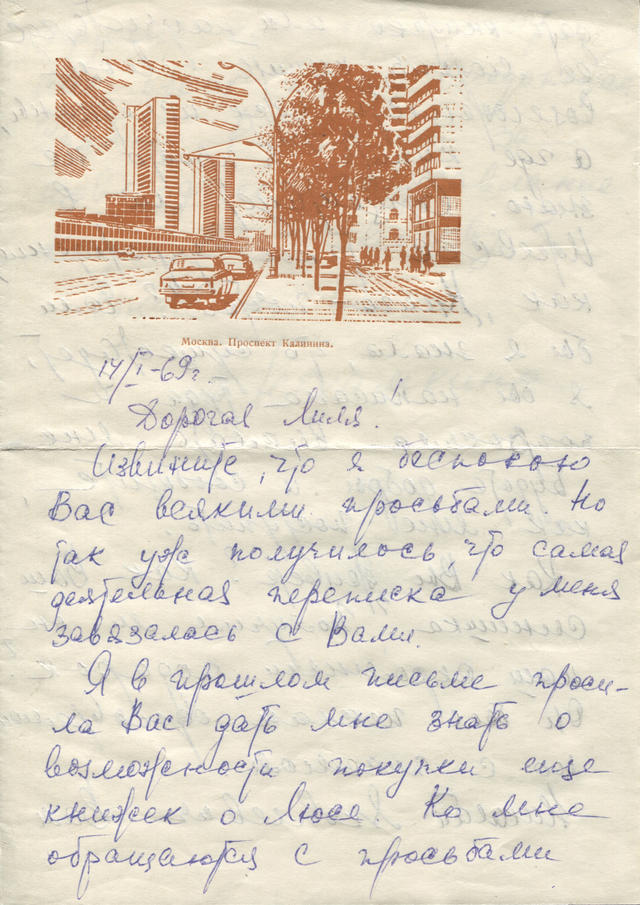 Москва. Проспект Калинина.
14/I-69г.
Дорогая Лиля!
Извините, что я беспокою
Вас всякими просьбами. Но
так уж получилось, что самая
деятельная переписка у меня
завязалась с Вами.
Я в прошлом письме проси-
ла Вас дать мне знать о
возможности покупки еще
книжек о Люсе. Ко мне
обращаются с просьбами